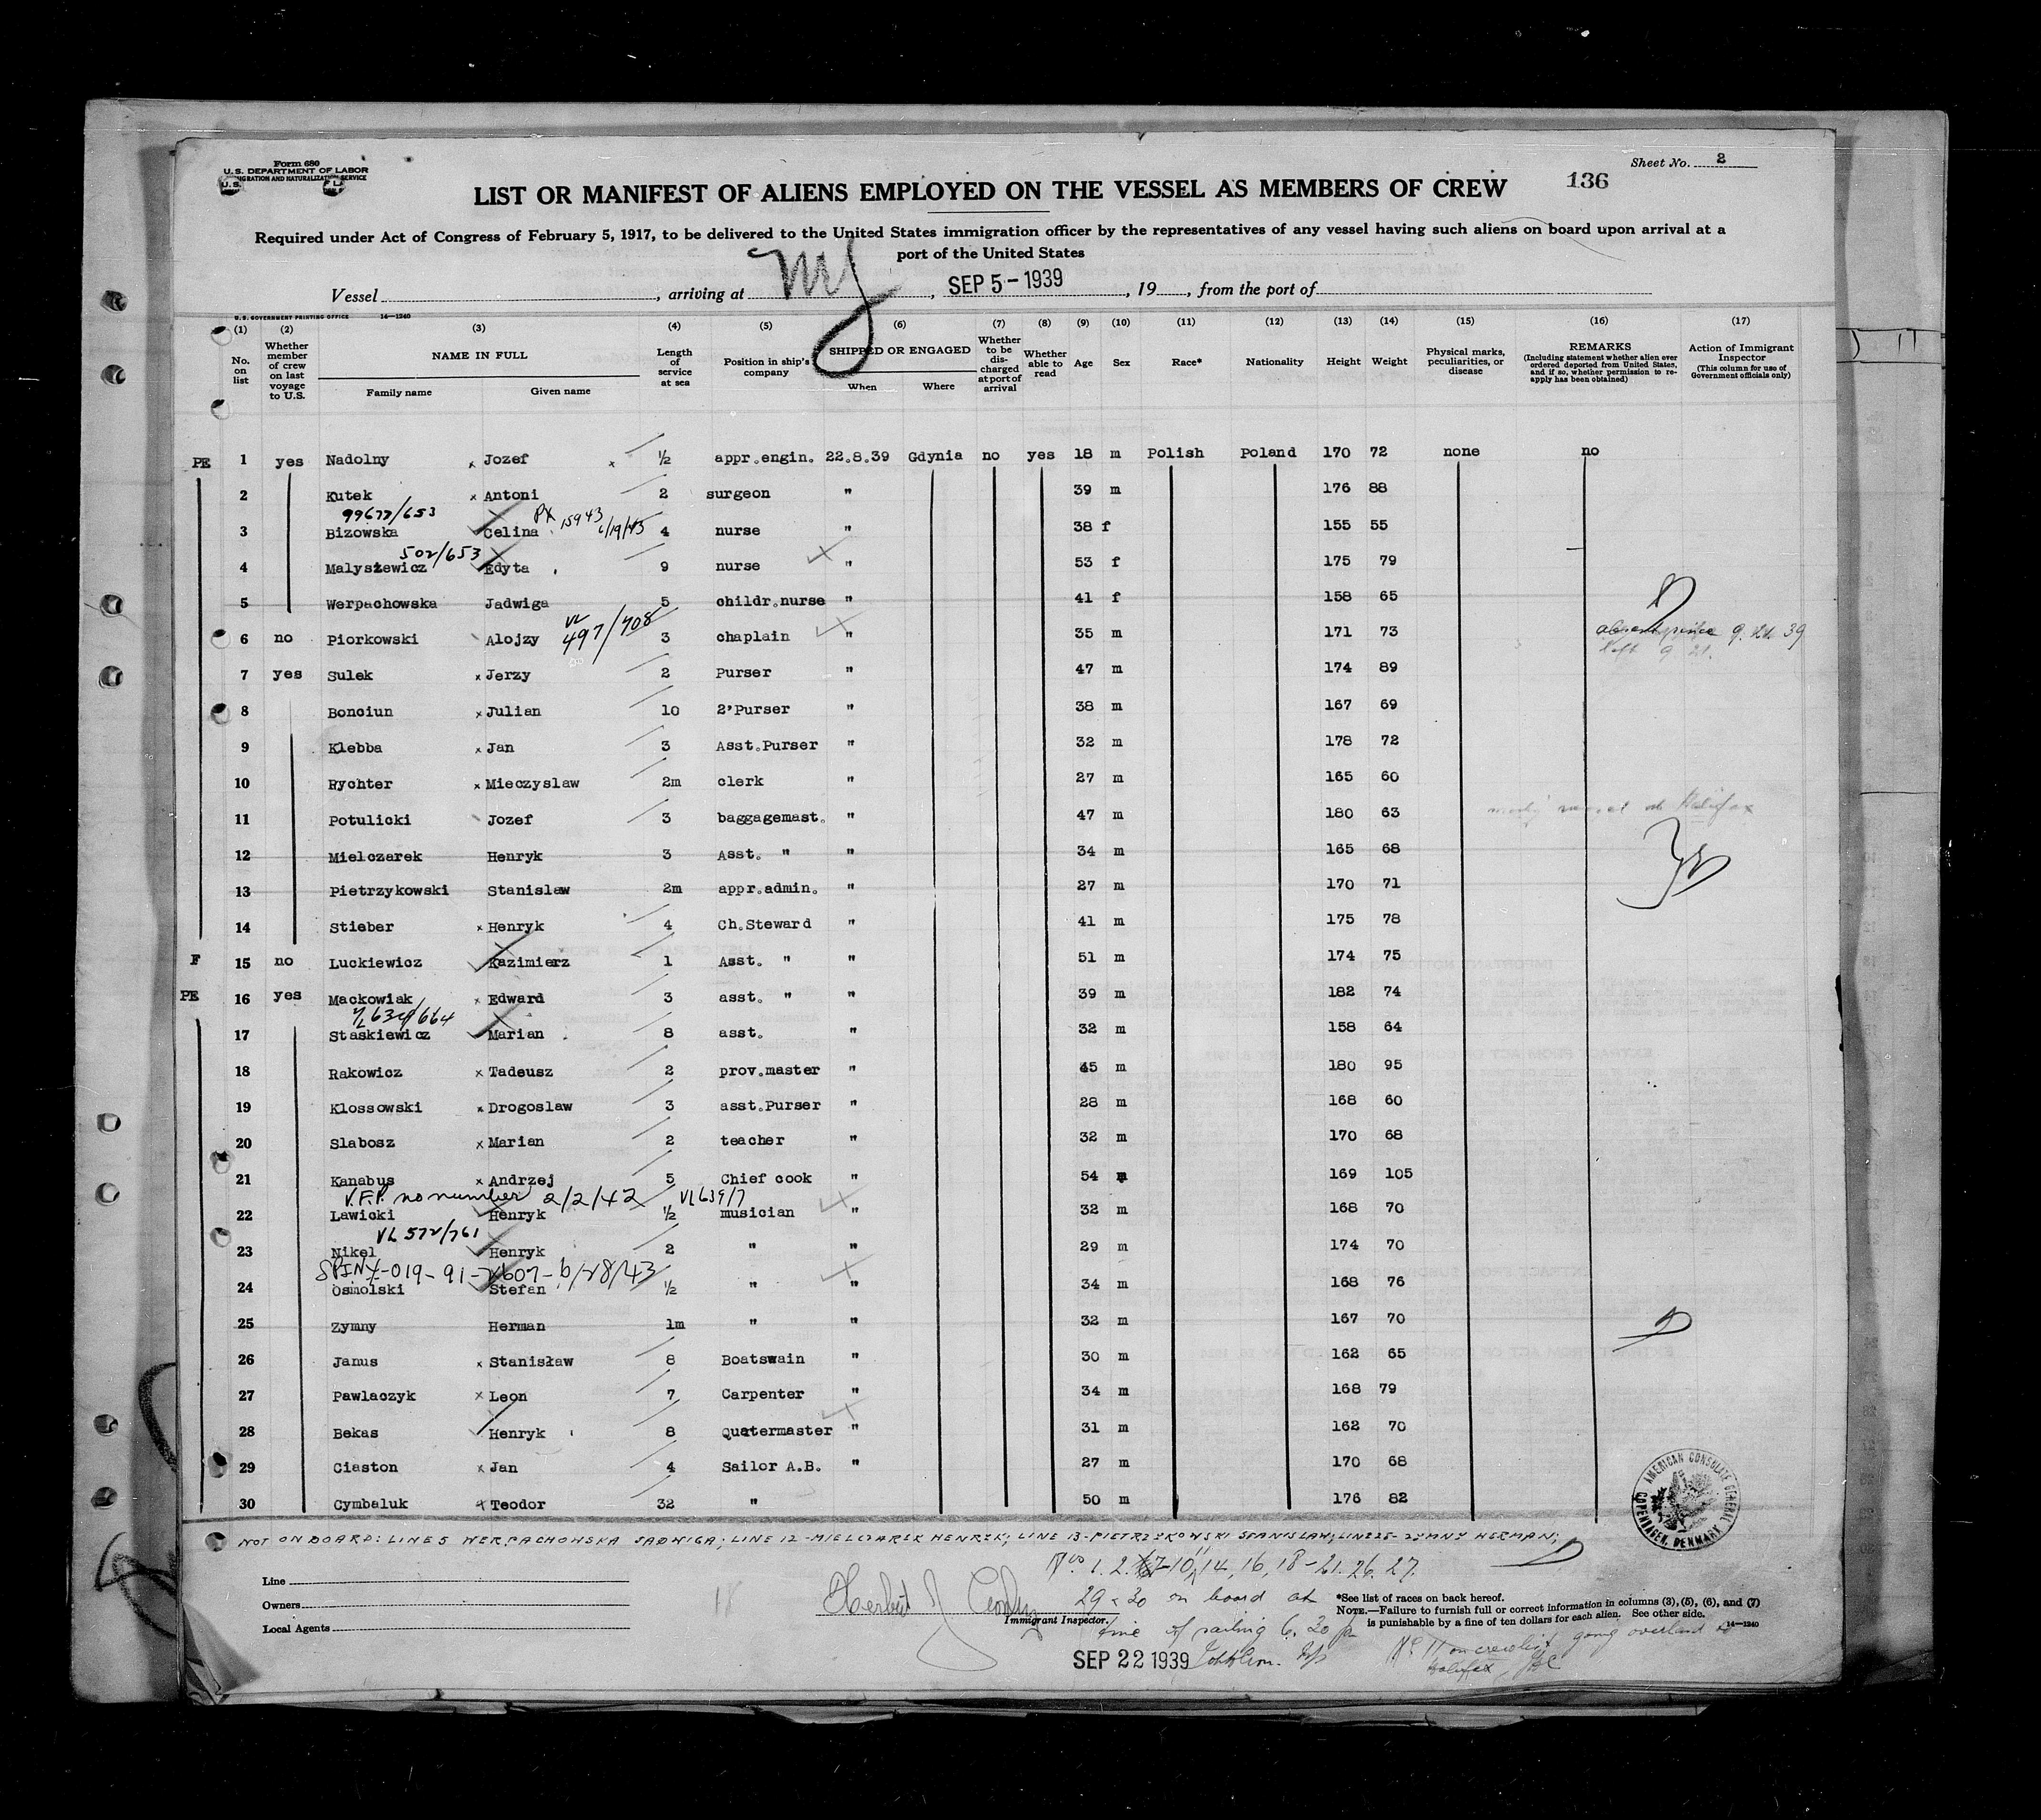 Form 680
U.S. DEPARTMENT OF LABOR
IMMIGRATION AND NATURALIZATION SERVICE
Sheet No. 2
136
LIST OR MANIFEST OF ALIENS EMPLOYED ON THE VESSEL AS MEMBERS OF CREW
Required under Act of Congress of February 5, 1917, to be delivered to the United States immigration officer by the representatives of any vessel having such aliens on board upon arrival at a
port of the United States
Vessel , arriving at NY , SEP 5 - 1939 , 19 , from the port of
U. S. GOVERNMENT PRINTING OFFICE 14—1240
(1) (2) (3) (4) (5) (6) (7) (8) (9) (10) (11) (12) (13) (14) (15) (16) (17)
No. on list
Whether member of crew on last voyage to U.S.
NAME IN FULL
Family name Given name
Length of service at sea
Position in ship's company
SHIPPED OR ENGAGED
When Where
Whether to be discharged at port of arrival
Whether able to read
Age Sex Race* Nationality Height Weight
Physical marks, peculiarities, or disease
REMARKS
(Including statement whether alien ever ordered deported from United States, and if so, whether permission to reapply has been obtained)
Action of Immigrant Inspector
(This column for use of Government officials only)
PE 1 yes Nadolny x Jozef x ½ appr.engin. 22.8.39 Gdynia no yes 18 m Polish Poland 170 72 none no
2 Kutek x Antoni 2 surgeon " 39 m 176 88
99677/653 PX 15943 6/19/43
3 Bizowska Celina 4 nurse " 38 f 155 55
502/653
4 Malyszewicz Edyta 9 nurse " 53 f 175 79
5 Werpachowska Jadwiga 5 childr.nurse " 41 f 158 65
VL 497/708
6 no Piorkowski Alojzy 3 chaplain " 35 m 171 73
7 yes Sulek x Jerzy 2 Purser " 47 m 174 89
8 Bonciun x Julian 10 2'Purser " 38 m 167 69
9 Klebba x Jan 3 Asst.Purser " 32 m 178 72
10 Rychter x Mieczyslaw 2m clerk " 27 m 165 60
11 Potulicki Jozef 3 baggagemast. " 47 m 180 63
12 Mielczarek Henryk 3 Asst. " " 34 m 165 68
13 Pietrzykowski Stanislaw 2m appr.admin. " 27 m 170 71
14 Stieber x Henryk 4 Ch.Steward " 41 m 175 78
F 15 no Luckiewicz Kazimierz 1 Asst. " " 51 m 174 75
PE 16 yes Mackowiak x Edward 3 asst. " " 39 m 182 74
VL 634/664
17 Staskiewicz Marian 8 asst. " 32 m 158 64
18 Rakowicz x Tadeusz 2 prov.master " 45 m 180 95
19 Klossowski x Drogoslaw 3 asst.Purser " 28 m 168 60
20 Slabosz x Marian 2 teacher " 32 m 170 68
21 Kanabus x Andrzej 5 Chief cook " 54 m 169 105
V.F.P. no number 2/2/42 VL639/7
22 Lawicki Henryk ½ musician " 32 m 168 70
VL 572/761
23 Nikel Henryk 2 " " 29 m 174 70
24 Osmolski Stefan ½ " " 34 m 168 76
25 Zymny Herman 1m " " 32 m 167 70
26 Janus x Stanisław 8 Boatswain " 30 m 162 65
27 Pawlaczyk x Leon 7 Carpenter " 34 m 168 79
28 Bekas Henryk 8 Quatermaster " 31 m 162 70
29 Ciaston x Jan 4 Sailor A.B. " 27 m 170 68
30 Cymbaluk x Teodor 32 " 50 m 176 82
AMERICAN CONSULATE GENERAL COPENHAGEN, DENMARK
NOT ON BOARD: LINE 5 WERPACHOWSKA JADWIGA; LINE 12 - MIELCZAREK HENRYK; LINE 13 - PIETRZYKOWSKI STANISLAW; LINE 25 - ZYMNY HERMAN;
14, 16, 18-21. 26. 27.
29 30 on board at
time of sailing 6.30 p
Line
Owners
Local Agents
Immigrant Inspector.
SEP 22 1939
*See list of races on back hereof.
NOTE.—Failure to furnish full or correct information in columns (3), (5), (6), and (7)
is punishable by a fine of ten dollars for each alien. See other side. 14—1240
No 11 on crewlist going overland to
Halifax